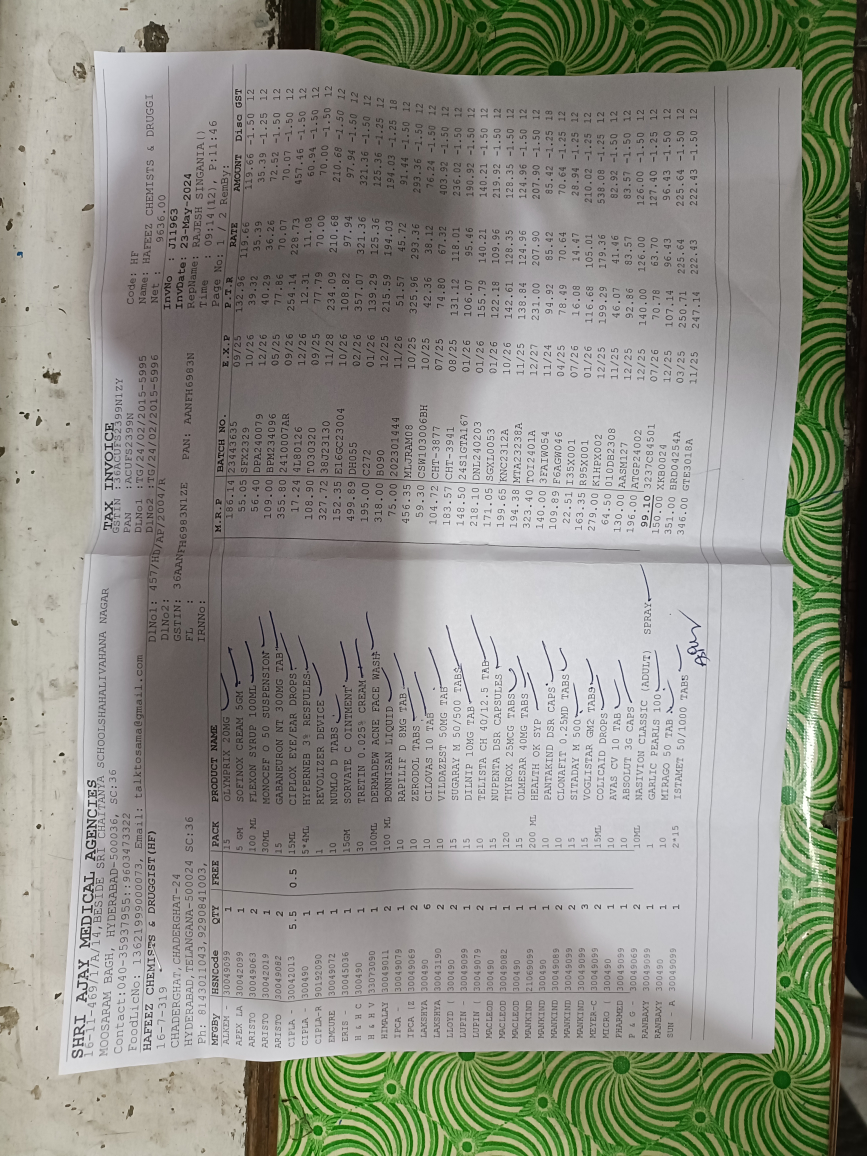 SHRI AJAY MEDICAL AGENCIES
16-11-469/1/A/14,BESIDE SRI CHAITANYA SCHOOLSHAHALIVAHANA NAGAR
MOOSARAM BAGH, HYDERABAD-500036, SC:36
Contact:040-35937955::9603473322
FoodLicNo: 13621999000073, Email: talktosama@gmail.com
TAX INVOICE
GSTIN :36ACUFS2399N1ZY
PAN :ACUFS2399N
DLNo1 :TG/24/02/2015-5995
DLNo2 :TG/24/02/2015-5996
Code: HF
Name: HAFEEZ CHEMISTS & DRUGGI
Net : 9636.00
HAFEEZ CHEMISTS & DRUGGIST(HF)
16-7-319
CHADERGHAT,CHADERGHAT-24
HYDERABAD,TELANGANA-500024 SC:36
Ph: 8143011043,9290841003,
DlNo1: 457/HD/AP/2004/R
DlNo2:
GSTIN: 36AANFH6983N1ZE PAN: AANFH6983N
FL :
IRNNo:
InvNo : J11963
InvDate: 23-May-2024
RepName: RAJESH SINGANIA()
Time : 09:14(12), P:11:46
Page No: 1 / 2 RemBy:
MFGBy HSNCode QTY FREE PACK PRODUCT NAME M.R.P BATCH NO. E.X.P P.T.R RATE AMOUNT Disc GST
ALKEM - 30049099 1 15 OLYMPRIX 20MG 186.14 23443635 09/25 132.96 119.66 119.66 -1.50 12
APEX LA 30042099 1 5 GM SOFINOX CREAM 5GM 55.05 SFX2329 10/26 39.32 35.39 35.39 -1.25 12
ARISTO 30049063 2 100 ML FLEXON SYRUP 100ML 56.40 UPA240079 12/26 40.29 36.26 72.52 -1.50 12
ARISTO 30042019 1 30ML MONOCEF O 50 SUSPENSION 109.00 RPM234096 05/25 77.86 70.07 70.07 -1.50 12
ARISTO 30049082 2 15 GARANEURON NT 300MG TAB 355.80 2410007AR 09/26 254.14 228.73 457.46 -1.50 12
CIPLA - 30042013 5.5 0.5 15ML CIPLOX EYE/EAR DROPS 17.24 4L80126 12/26 12.31 11.08 60.94 -1.50 12
CIPLA - 300490 1 5*4ML HYPERNEB 3% RESPULES 108.90 R030320 09/25 77.79 70.00 70.00 -1.50 12
CIPLA-R 90192090 1 1 REVOLIZER DEVICE 327.72 38U23130 11/28 234.09 210.68 210.68 -1.50 12
EMCURE 30049072 1 10 NUMLO D TABS 152.35 E16GC23004 10/26 108.82 97.94 97.94 -1.50 12
ERIS - 30045036 1 15GM SORVATE C OINTMENT 499.89 DH055 02/26 357.07 321.36 321.36 -1.50 12
H & H C 300490 1 30 TRETIN 0.025% CREAM 195.00 C272 01/26 139.29 125.36 125.36 -1.25 12
H & H V 33073090 1 100ML DERMADEW ACNE FACE WASH 318.00 B090 12/25 215.59 194.03 194.03 -1.25 18
HIMALAY 30049011 2 100 ML BONNISAN LIQUID 75.00 202301444 11/26 51.57 45.72 91.44 -1.50 12
IPCA - 30049079 1 10 RAPILIF D 8MG TAB 456.35 MLJRAM08 10/25 325.96 293.36 293.36 -1.50 12
IPCA (Z 30049069 2 10 ZERODOL TABS 59.30 CSW103006BH 10/25 42.36 38.12 76.24 -1.50 12
LAKSHYA 300490 6 10 CILOVAS 10 TAB 104.72 CHT-3877 07/25 74.80 67.32 403.92 -1.50 12
LAKSHYA 30043190 2 10 VILDAZEST 50MG TAB 183.57 CHT-3941 08/25 131.12 118.01 236.02 -1.50 12
LLOYD ( 300490 2 15 SUGARAY M 50/500 TABS 148.50 14S1GTA167 01/26 106.07 95.46 190.92 -1.50 12
LUPIN ( 30049099 1 15 DILNIP 10MG TAB 218.10 DNL2400203 01/26 155.79 140.21 140.21 -1.50 12
LUPIN ( 30049079 2 10 TELISTA CH 40/12.5 TAB 171.05 SGXL0053 01/26 122.18 109.96 219.92 -1.50 12
MACLEOD 300490 1 15 NUPENTA DSR CAPSULES 199.65 KNC2312A 10/26 142.61 128.35 128.35 -1.50 12
MACLEOD 30049082 1 120 THYROX 25MCG TABS 194.38 MTA23238A 11/25 138.84 124.96 124.96 -1.50 12
MACLEOD 300490 1 15 OLMESAR 40MG TABS 323.40 TOI2401A 12/27 231.00 207.90 207.90 -1.50 12
MANKIND 21069099 1 200 ML HEALTH OK SYP 140.00 3FAIW054 11/24 94.92 85.42 85.42 -1.25 18
MANKIND 300490 1 10 PANTAKIND DSR CAPS 109.89 F6AGW046 04/25 78.49 70.64 70.64 -1.25 12
MANKIND 30049089 2 10 CLONAFIT 0.25MD TABS 22.51 I35X001 07/26 16.08 14.47 28.94 -1.25 12
MANKIND 30049099 2 15 SITADAY M 500 163.35 R95X001 01/26 116.68 105.01 210.02 -1.25 12
MEYER-C 30049099 3 15 VOGLISTAR GM2 TABS 279.00 K1HPX002 12/25 199.29 179.36 538.08 -1.25 12
MICRO ( 30049099 2 15ML COLICAID DROPS 64.50 010DB2308 11/25 46.07 41.46 82.92 -1.50 12
PHARMED 300490 1 10 AVAS CV 10 TAB 130.00 AASM127 12/25 92.86 83.57 83.57 -1.50 12
P & G - 30049099 1 10 ABSOLUT 3G CAPS 196.00 ATGP24002 12/25 140.00 126.00 126.00 -1.50 12
RANBAXY 30049069 2 10ML NASIVION CLASSIC (ADULT) SPRAY 99.10 3237C84501 07/26 70.78 63.70 127.40 -1.25 12
RANBAXY 30049099 1 1 GARLIC PEARLS 100 150.00 XKB0024 12/25 107.14 96.43 96.43 -1.50 12
SUN - A 300490 1 10 MIRAGO 50 TAB 351.00 BRD04254A 03/25 250.71 225.64 225.64 -1.50 12
30049099 1 2*15 ISTAMET 50/1000 TABS 346.00 GTE3018A 11/25 247.14 222.43 222.43 -1.50 12